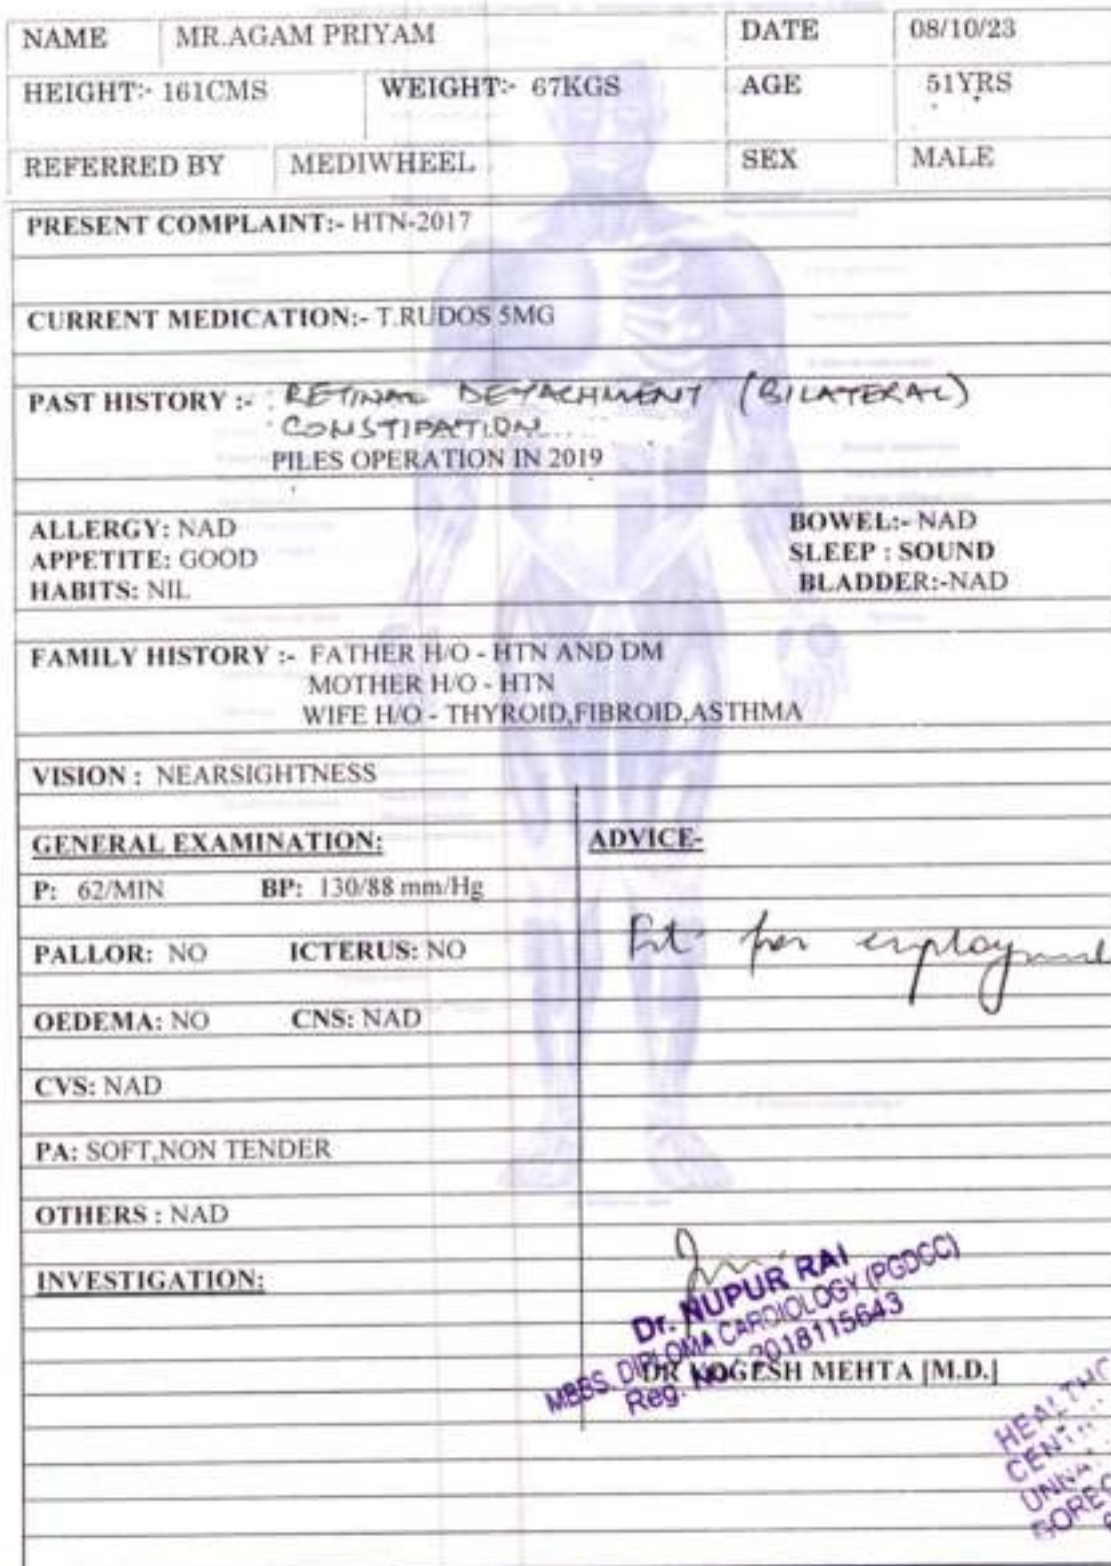 NAME MR.AGAM PRIYAM DATE 08/10/23
HEIGHT:- 161CMS WEIGHT:- 67KGS AGE 51YRS
REFERRED BY MEDIWHEEL SEX MALE
PRESENT COMPLAINT:- HTN-2017
CURRENT MEDICATION:- T.RUDOS 5MG
PAST HISTORY :- RETINAL DETACHMENT (BILATERAL)
CONSTIPATION
PILES OPERATION IN 2019
ALLERGY: NAD BOWEL:- NAD
APPETITE: GOOD SLEEP : SOUND
HABITS: NIL BLADDER:-NAD
FAMILY HISTORY :- FATHER H/O - HTN AND DM
MOTHER H/O - HTN
WIFE H/O - THYROID,FIBROID,ASTHMA
VISION : NEARSIGHTNESS
GENERAL EXAMINATION: ADVICE-
P: 62/MIN BP: 130/88 mm/Hg
Fit for employment
PALLOR: NO ICTERUS: NO
OEDEMA: NO CNS: NAD
CVS: NAD
PA: SOFT,NON TENDER
OTHERS : NAD
INVESTIGATION:
Dr. NUPUR RAI
MBBS. DIPLOMA CARDIOLOGY (PGDCC)
Reg. No. 2018115643
DR YOGESH MEHTA [M.D.]
HEALTHC
CENT
UNNA
GOREG